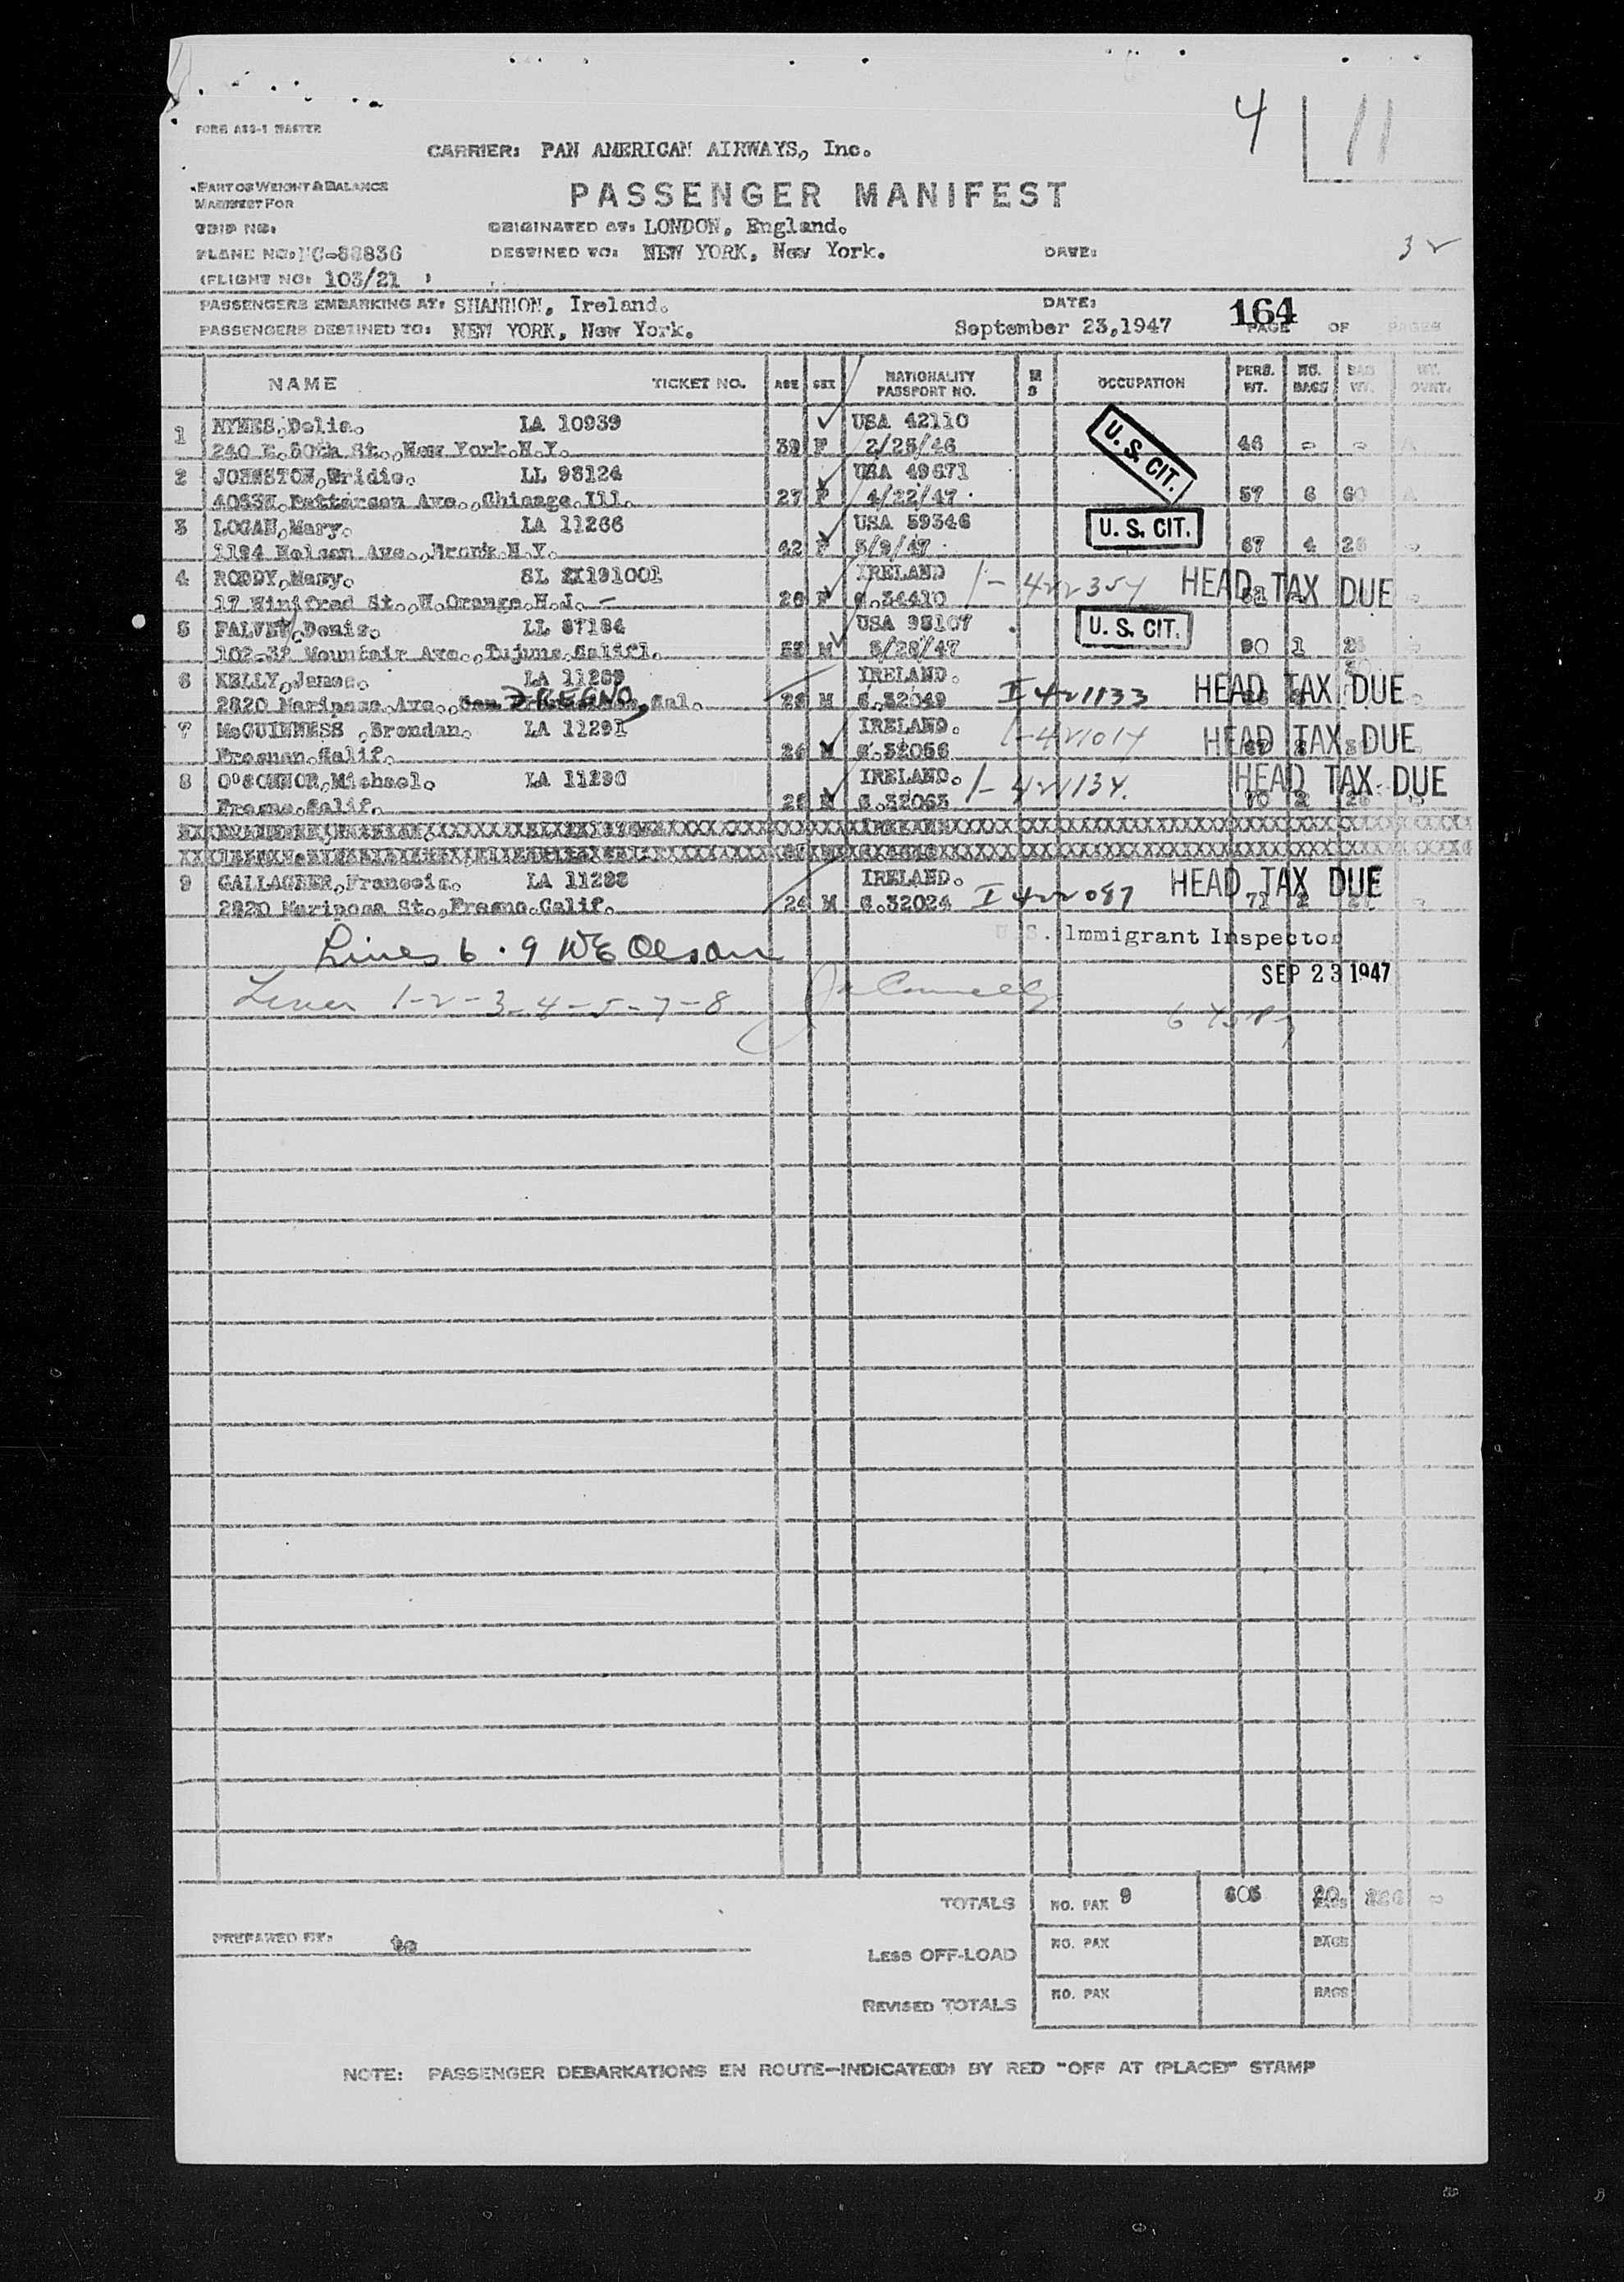 4 11
FORM ASS-1 MASTER
CARRIER: PAN AMERICAN AIRWAYS, Inc.
PART OF WEIGHT & BALANCE
MANIFEST FOR
PASSENGER MANIFEST
TRIP NO:
ORIGINATED AT: LONDON, England.
PLANE NO: NC-88836
DESTINED TO: NEW YORK, New York.
DATE:
32
(FLIGHT NO: 103/21 )
PASSENGERS EMBARKING AT: SHANNON, Ireland.
DATE:
164
PASSENGERS DESTINED TO: NEW YORK, New York.
September 23,1947
PAGE OF PAGES
NAME TICKET NO. AGE SEX NATIONALITY PASSPORT NO. M S OCCUPATION PERS. WT. NO. BAGS BAG WT. WT. OVRT.
1 HYNES,Delia. LA 10939 USA 42110 U. S. CIT.
240 E.80th St.,New York.N.Y. 39 F 2/25/46 46 - -
2 JOHNSTON,Bridie. LL 98124 USA 49671
4053N.Patterson Ave.,Chicago.Ill. 27 F 4/22/47 57 6 60
3 LOGAN,Mary. LA 11266 USA 59346 U. S. CIT.
1194 Nelson Ave.,Bronx.N.Y. 42 F 5/9/47 67 4 26
4 RODDY,Mary. SL 2X191001 IRELAND 1-422354 HEAD TAX DUE
17 Winifred St.,W.Orange.N.J. 26 F G.34410
5 FALVEY,Denis. LL 87184 USA 98107 U. S. CIT.
102-37 Mountair Ave.,Tujuna.Califl. 52 M 5/28/47 90 1
6 KELLY,James. LA 11289 IRELAND. I 421133 HEAD TAX DUE
2820 Mariposa Ave., FRESNO, Cal. 28 M G.32049
7 McGUINNESS ,Brendan. LA 11291 IRELAND. 1-421014 HEAD TAX DUE
Fresnan.Calif. 24 M G.32056
8 O'CONNOR,Michael. LA 11290 IRELAND. 1-421134. HEAD TAX DUE
Fresno.Calif. 26 M G.32063 70 2 26
9 GALLAGHER,Francois. LA 11288 IRELAND. HEAD TAX DUE
2820 Mariposa St.,Fresno.Calif. 24 M G.32024 I 422087 71 2
Lines 6 . 9 WE Olson
U. S. Immigrant Inspector
SEP 23 1947
Lines 1-2-3-4-5-7-8 Connelly
TOTALS NO. PAX 9 605 20 BAGS 226 -
PREPARED BY:
LESS OFF-LOAD NO. PAX BAGS
REVISED TOTALS NO. PAX BAGS
NOTE: PASSENGER DEBARKATIONS EN ROUTE—INDICATE(D) BY RED "OFF AT (PLACE)" STAMP